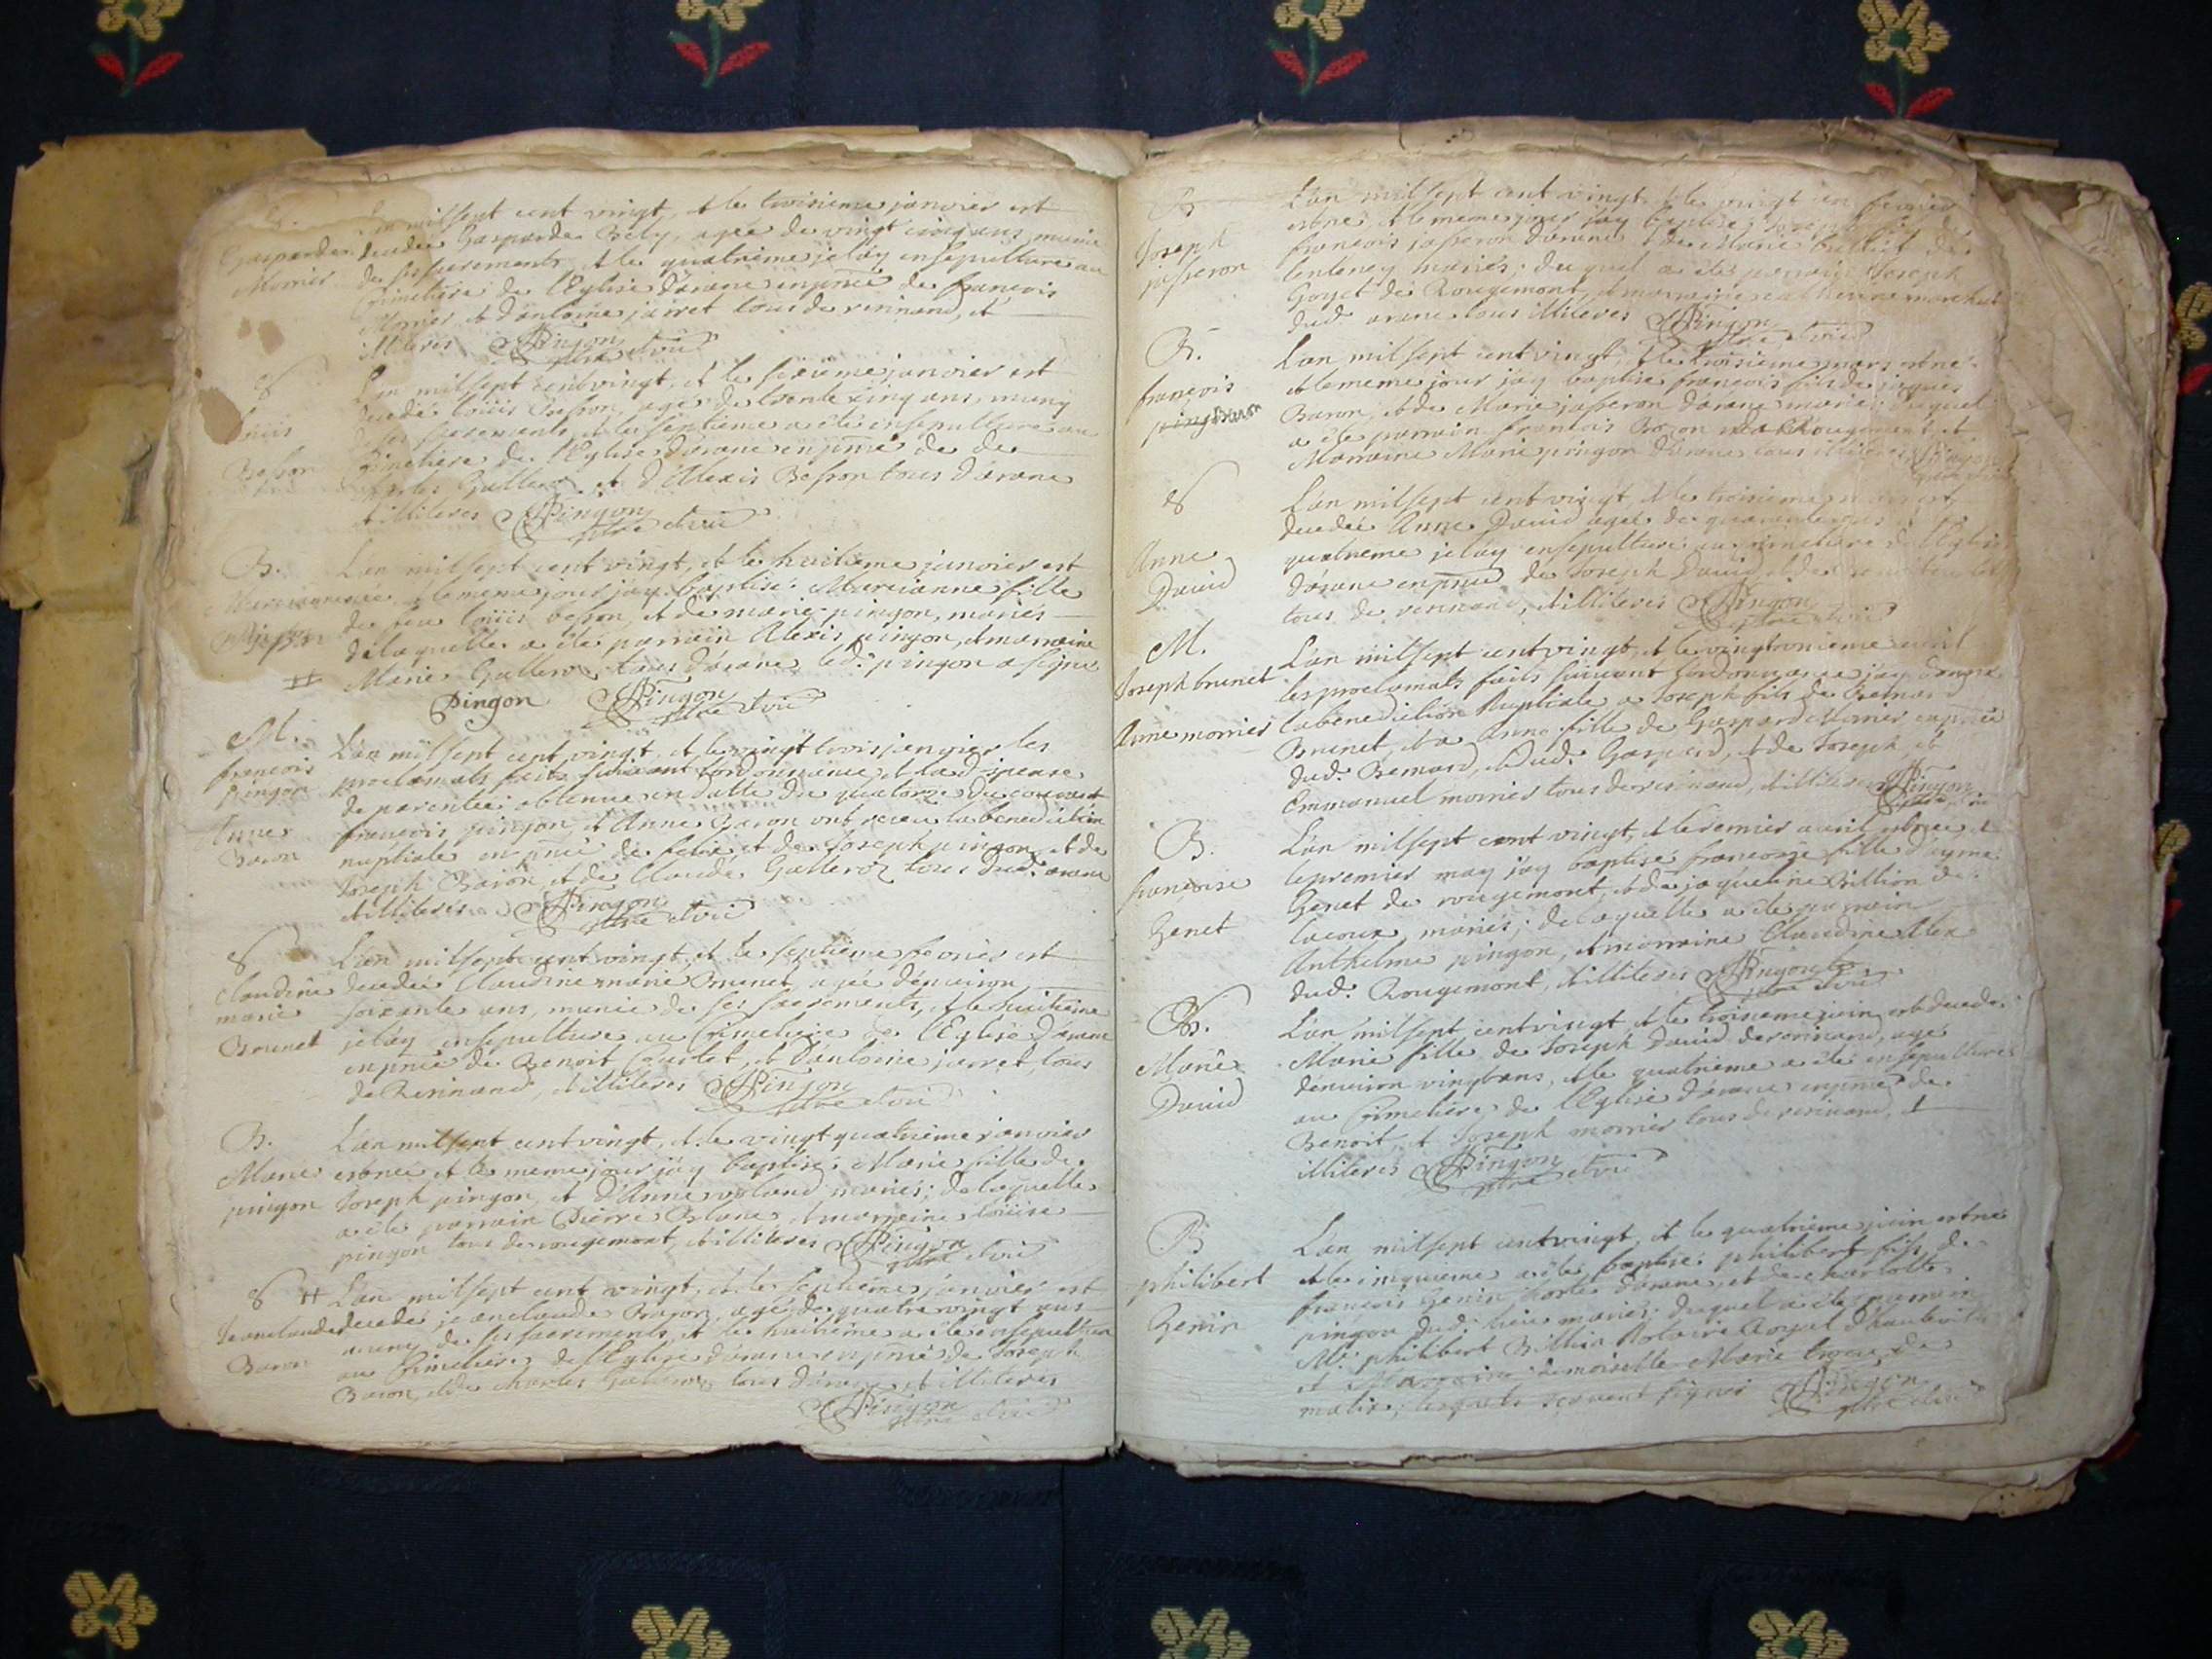 L'an mil sept cent vingt, et le troisieme janvier est
Gasparde decedée Gasparde Bely, agée de vingt cinq ans, munie
Monier de ses sacrements, et le quatrieme je l'ay ensepulturé au
Cimetiere de l'Eglise d'arane en pnce de francois
Monier et d'antoine jarret tous de resinand, et
illiteres Pingon
ptre Curé
S
L'an mil sept cent vingt, et le sixieme janvier est
Loüis decedé loüis Besson, agé de trente cinq ans, muny
de ses sacrements, et le septieme a été ensepulturé au
Besson Cimetiere de l'Eglise d'arane en pnce de de
Charles Galleroz et d'Alexis Besson tous d'arane
et illiteres Pingon
ptre Curé
B. L'an mil sept cent vingt, et le huitieme janvier est
Marianne née et le meme jour j'ay baptisé Marianne fille
Besson de feu loüis besson, et de marie pingon, mariés
de laquelle a été parrain Alexis pingon, et marraine
Marie Galleroz tous d'arane led. pingon a signé
Pingon Pingon
ptre Curé
M.
L'an mil sept cent vingt, et le vingt trois janvier les
francois proclamats faits suivant l'ordonnance et la dispense
pingon de parentée obtenue en datte du quatorze du courant
Anne francois pingon, et Anne Baron ont receu la benediction
Baron nuptiale en pnce de felix et de Joseph pingon, et de
Joseph Baron, et de Claude Galleroz tous dud. arane
et illiteres Pingon
ptre Curé
S L'an mil sept cent vingt, et le septieme fevrier est
Claudine decedée Claudine marie Brunet, agée d'environ
marie soixante ans, munie de ses sacrements, et le huitieme
Brunet je l'ay ensepulturé au Cimetiere de l'Eglise d'arane
en pnce de Benoit et d'antoine jarret, tous
de Resinand, et illiteres Pingon
ptre Curé
B. L'an mil sept cent vingt, et le vingt quatrieme janvier
Marie est née et le meme jour j'ay baptisé Marie fille de
pingon Joseph pingon, et d'Anne mariés; de laquelle
a été parrain Pierre Blanc, et marraine loüise
pingon tous de rougemont, et illiteres Pingon
ptre Curé
S # L'an mil sept cent vingt, et le septieme janvier est
Jeanclaude decedé jeanclaude Baron, agé de quatre vingt ans
Baron muny de ses sacrements, et le huitieme a été ensepulturé
au Cimetiere de l'Eglise d'arane en pnce de Joseph
Baron, et de charles Galleroz tous d'arane et illiteres
Pingon
ptre Curé
B L'an mil sept cent vingt et le vingt un fevrier
Joseph est né et le meme jour j'ay baptisé Joseph fils de
jasseron francois jasseron d'arane et de Marie de
lentenay mariés; duquel a été parrain Joseph
Goyet de Rougemont, et marraine
dud. arane tous illiteres Pingon
ptre Curé
B. L'an mil sept cent vingt, et le troisieme mars est né
francois et le meme jour j'ay baptisé francois fils de jaques
baron Baron, et de Marie jasseron d'arane mariés; duquel
a été parrain francois Baron de Rougemont et
Marraine Marie pingon d'arane tous illiteres Pingon
ptre Curé
S L'an mil sept cent vingt, et le troisieme mars est
decedée Anne David agée de quarante ans
Anne quatrieme je l'ay ensepulturé au cimetiere de l'Eglise
David d'arane en pnce de Joseph David
tous de resinand, et illiteres Pingon
ptre Curé
M. L'an mil sept cent vingt, et le avril
Joseph brunet les proclamats faits suivant l'ordonnance j'ay donné
la benediction Nuptiale a Joseph fils de Bernard
Anne monier Brunet, et a Anne fille de Gaspard Monier en pnce
dud. Bernard, et dud. Gaspard, et de Joseph et
Emmanuel monier tous de resinand, et illiteres Pingon
ptre Curé
B. L'an mil sept cent vingt, et le dernier avril est née et
le premier may j'ay baptisé francoise fille d'ayme
francoise Genet de rougemont, et de jaqueline Billion de
Genet lacoux, mariés; de laquelle a été parrain
Anthelme pingon, et marraine Claudine
dud. Rougemont, et illiteres Pingon
ptre Curé
S. L'an mil sept cent vingt et le troisieme juin est decedée
Marie Marie fille de Joseph David de resinand, agée
David d'environ vingt ans, et le quatrieme a été ensepulturée
au Cimetiere de l'Eglise d'arane en pnce de
Benoit, et Joseph monier tous de resinand, et
illiteres Pingon
ptre Curé
B L'an mil sept cent vingt, et le quatrieme juin est né
philibert et le cinquieme a été baptisé philibert fils de
Genin francois Genin d'arane, et de charlotte
pingon dud. lieu mariés; duquel a été parrain
Mr. philibert Billion Notaire Royal d'hauteville
et Marraine demoiselle Marie de
lesquels scavent signer Pingon
ptre Curé